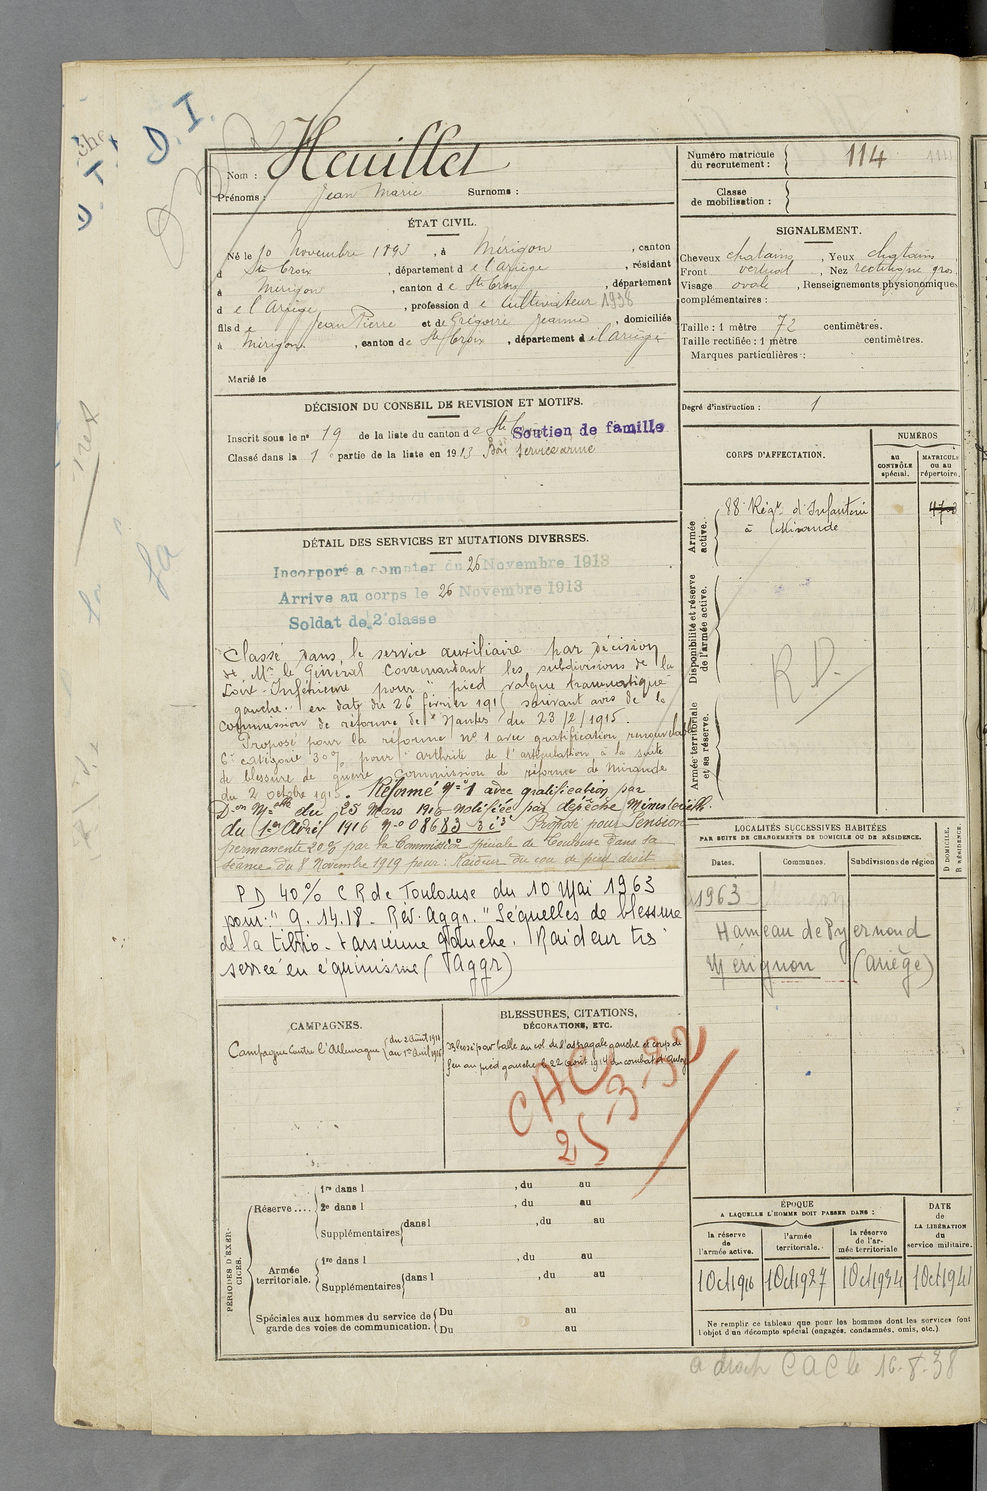 D. I.
D. I.
Nom : Heuillet
Prénoms : Jean Marie Surnoms :
Numéro matricule du recrutement : 114
Classe de mobilisation :
ÉTAT CIVIL.
Né le 10 Novembre 1893, à Mérigon, canton
d Ste Croix, département de l'Ariège, résidant
à Mérigon, canton de Ste Croix, département
de l'Ariège, profession de Cultivateur 1938
fils de Jean Pierre et de Grégoire Jeanne, domiciliés
à Mérigon, canton de Ste Croix, département de l'Ariège
Marié le
SIGNALEMENT.
Cheveux chatains, Yeux chatains
Front vertical, Nez rectiligne gros
Visage ovale, Renseignements physionomiques
complémentaires :
Taille : 1 mètre 72 centimètres.
Taille rectifiée : 1 mètre centimètres.
Marques particulières :
Degré d'instruction : 1
DÉCISION DU CONSEIL DE REVISION ET MOTIFS.
Inscrit sous le n° 19 de la liste du canton de Ste
Soutien de famille
Classé dans la 1e partie de la liste en 1913 Bon service armé
CORPS D'AFFECTATION.
NUMÉROS
au CONTRÔLE spécial.
MATRICULE ou au répertoire.
Armée active.
88e Régt d'Infanterie
à Mirande
Disponibilité et réserve de l'armée active.
R D.
Armée territoriale et sa réserve.
DÉTAIL DES SERVICES ET MUTATIONS DIVERSES.
Incorporé a compter du 26 Novembre 1913
Arrive au corps le 26 Novembre 1913
Soldat de 2e classe
Classé dans le service auxiliaire par Décision
de Mr le Général Commandant les subdivisions de la
Loire-Inférieure pour "pied valgue traumatique
gauche" en date du 26 février 1915 suivant avis de la
commission de réforme de Nantes du 23/2/1915.
Proposé pour la réforme n° 1 avec gratification renouvelable
6e catégorie 30% pour "arthrite de l'articulation à la suite
de blessure de guerre" commission de réforme de Mirande
du 2 octobre 1915. Réformé N° 1 avec gratification par
Don Mlle du 25 Mars 1916 notifiée par dépêche Ministérielle
du 1er Avril 1916 N° 08683 Proposé pour Pension
permanente 20% par la Commission Spéciale de Toulouse dans sa
séance du 8 Novembre 1919 pour : Raideur du cou de pied droit
PD 40% C R de Toulouse du 10 Mai 1963
pour : "G. 14.18 - Rév. Aggr. "Séquelles de blessure
de la tibio-tarsienne gauche. Raideur très
serrée en équinisme (Aggr)
LOCALITÉS SUCCESSIVES HABITÉES
PAR SUITE DE CHANGEMENTS DE DOMICILE OU DE RÉSIDENCE.
Dates. Communes. Subdivisions de région
D DOMICILE. R RÉSIDENCE.
1963
Hameau de Pyernoud
Mérignon (Ariège)
CAMPAGNES.
Campagne contre l'Allemagne du 2 Août 1914
au 1er Avril 1916
BLESSURES, CITATIONS,
DÉCORATIONS, ETC.
Blessé par balle au col de l'astragale gauche et coup de
feu au pied gauche le 22 août 1914 au combat
PÉRIODES D'EXERCICES.
Réserve .... 1re dans l , du au
2e dans l , du au
Supplémentaires dans l , du au
Armée territoriale. 1re dans l , du au
Supplémentaires dans l , du au
Spéciales aux hommes du service de garde des voies de communication. Du au
Du au
ÉPOQUE
A LAQUELLE L'HOMME DOIT PASSER DANS :
la réserve de l'armée active.
l'armée territoriale.
la réserve de l'armée territoriale
DATE de LA LIBÉRATION du service militaire.
1 Oct 1916 1 Oct 1927 1 Oct 1934 1 Oct 1941
Ne remplir ce tableau que pour les hommes dont les services font
l'objet d'un décompte spécial (engagés, condamnés, omis, etc.)
CAC le 16-8-38